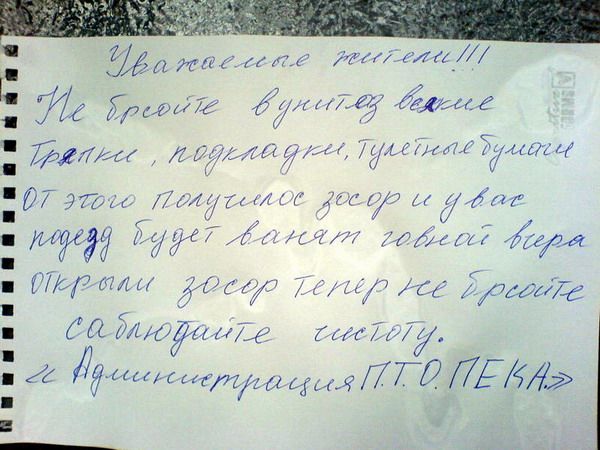 Уважаемые жители!!!
Не брсойте в унитоз всякие
Тряпки, подкладки, тулетные бумаги
от этого получилос зосор и у вас
подезд будет ванят говной вчера
открыли зосор тепер не брсойте
саблюдайте чистоту.
« Администрация П.Т.О. ПЕКА.»